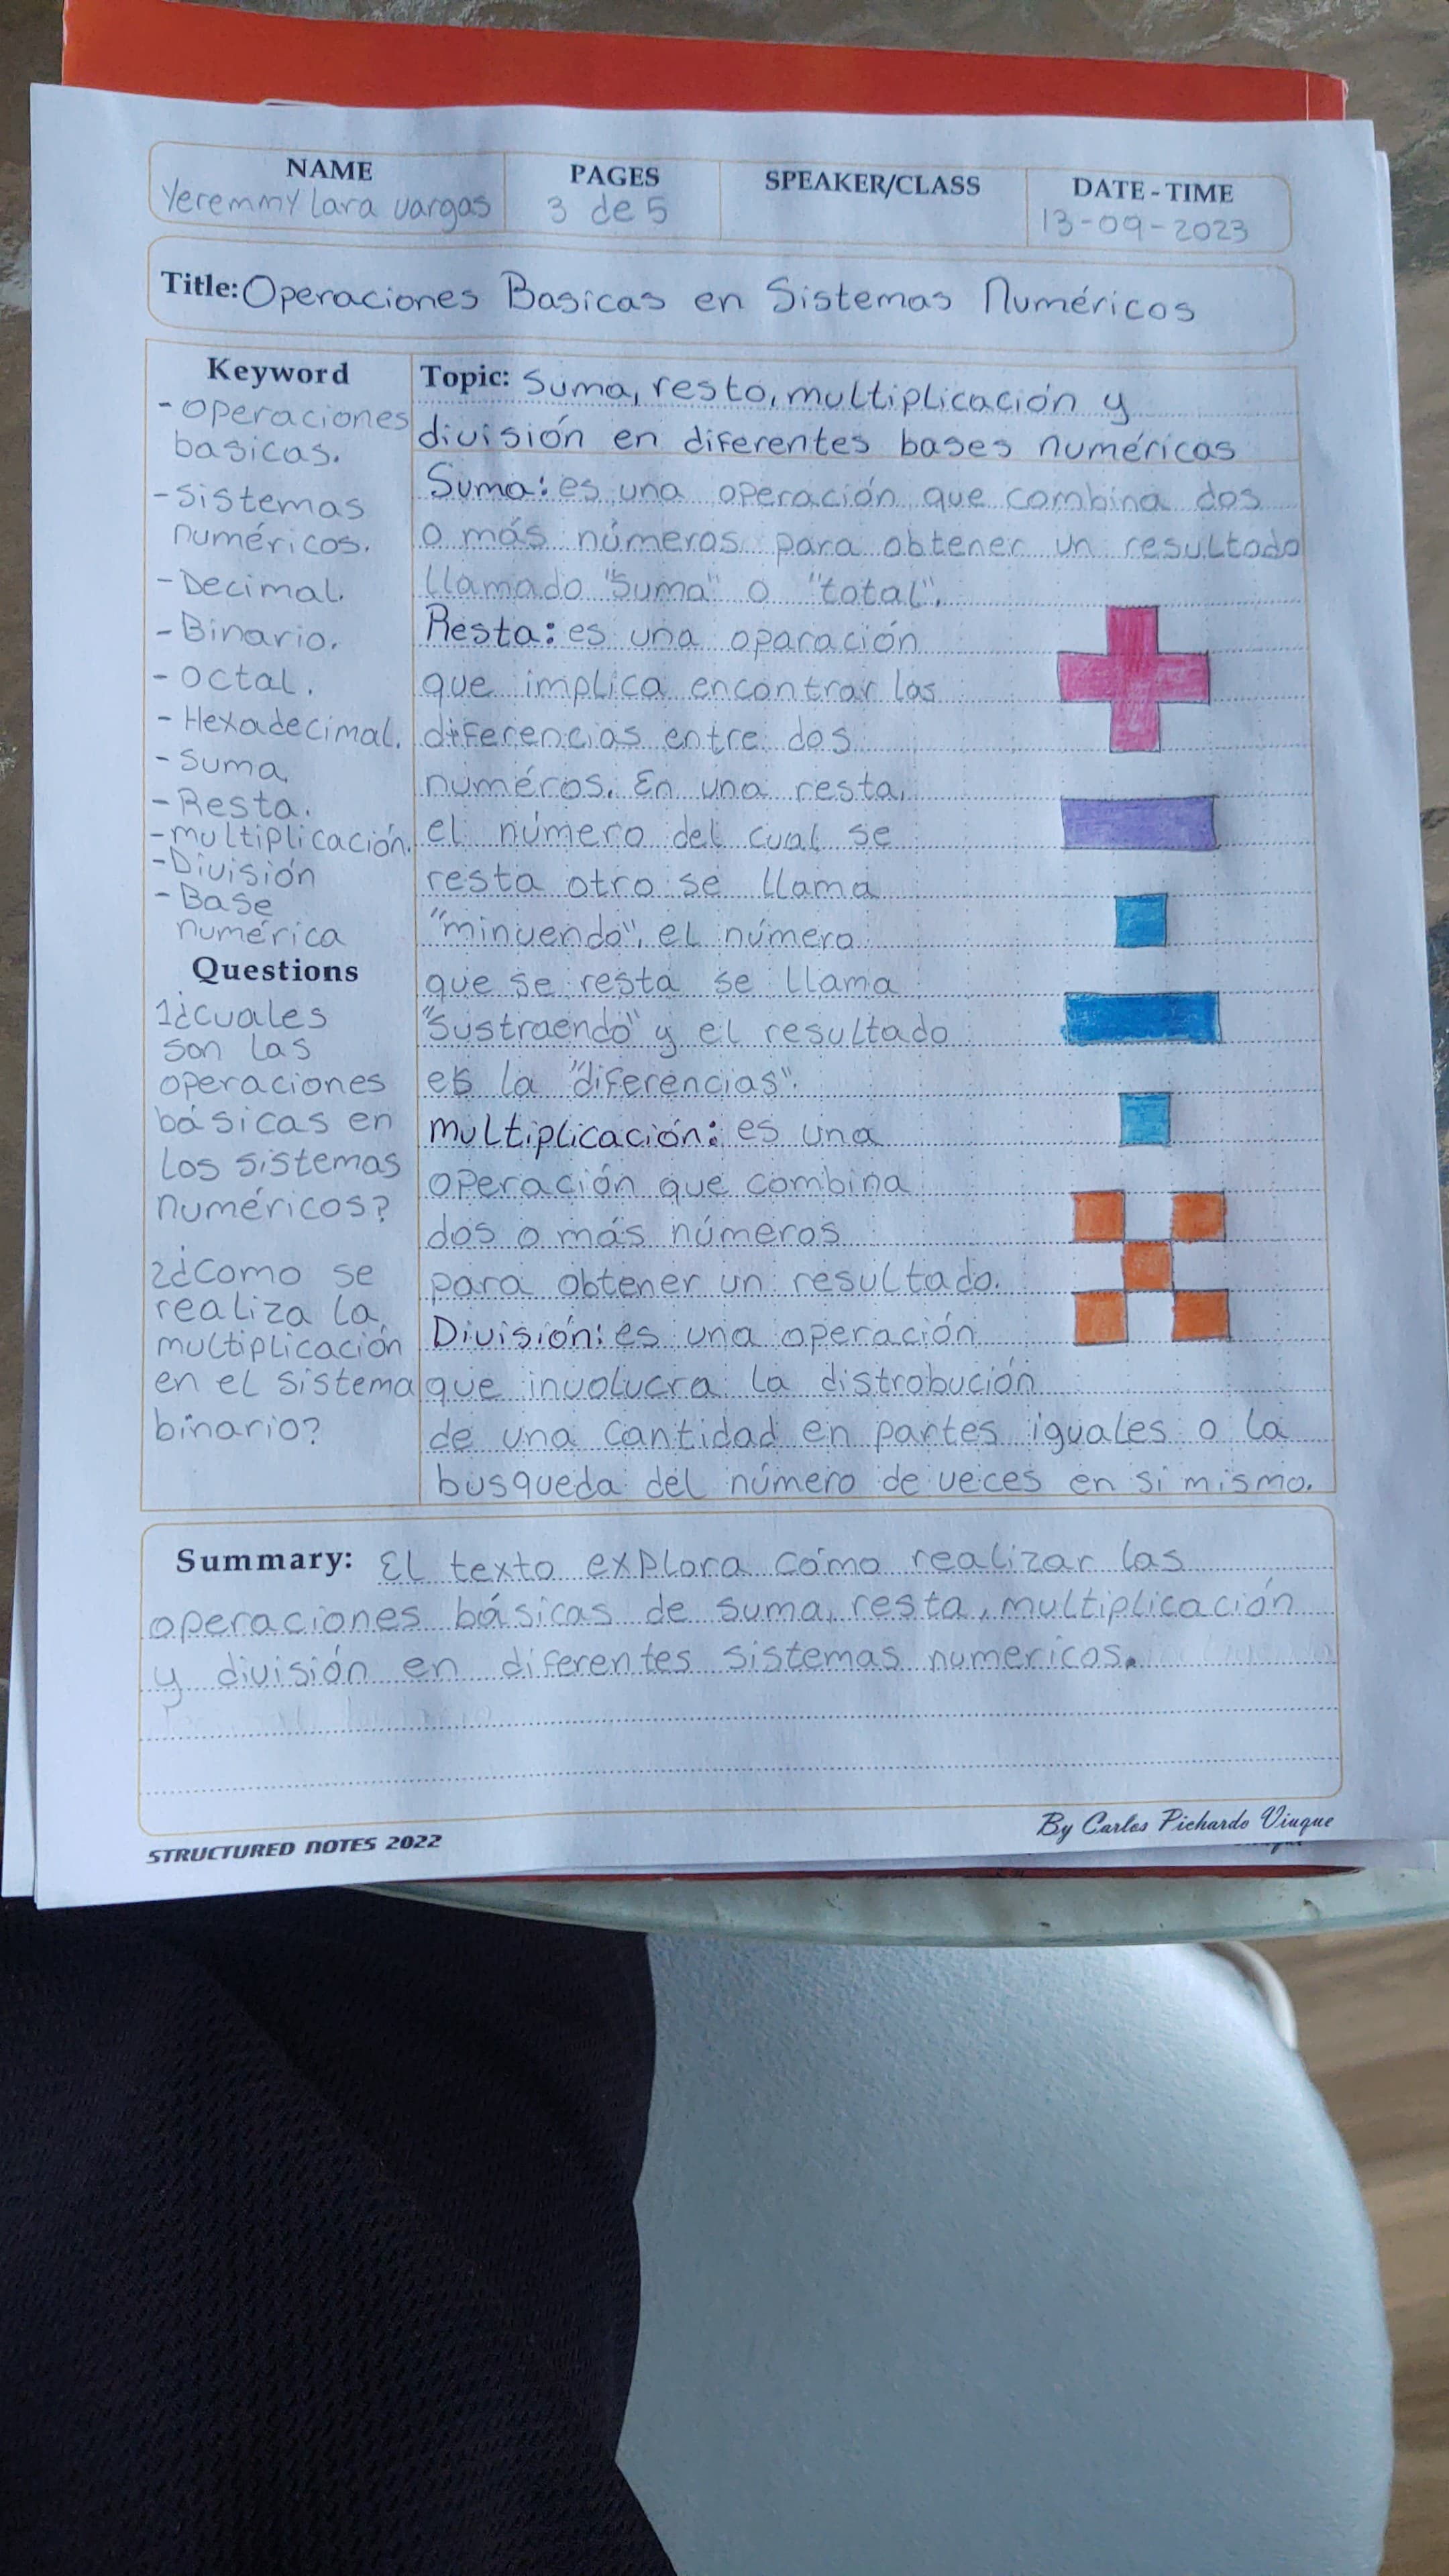 NAME
Yeremmy Lara vargas
PAGES
3 de 5
SPEAKER/CLASS
DATE - TIME
13-09-2023
Title: Operaciones Basicas en Sistemas Numéricos
Keyword
- Operaciones
basicas.
- Sistemas
numéricos.
- Decimal.
- Binario.
- Octal.
- Hexadecimal.
- Suma.
- Resta.
- multiplicación.
- División
- Base
numérica
Questions
1¿cuales
son las
operaciones
básicas en
los sistemas
numéricos?
2¿Como se
realiza la
multiplicación
en el sistema
binario?
Topic: Suma, resto, multiplicación y
división en diferentes bases numéricas
Suma: es una operación que combina dos
o más números para obtener un resultado
llamado "suma" o "total".
Resta: es una oparación
que implica encontrar las
diferencias entre dos
numéros. En una resta,
el número del cual se
resta otro se llama
"minuendo", el número
que se resta se llama
"Sustraendo" y el resultado
es la "diferencias".
multiplicación: es una
operación que combina
dos o más números
para obtener un resultado.
División: es una operación
que involucra la distrobución
de una cantidad en partes iguales o la
busqueda del número de veces en si mismo.
Summary: El texto explora cómo realizar las
operaciones básicas de suma, resta, multiplicación
y división en diferentes sistemas numericos.
STRUCTURED NOTES 2022
By Carlos Pichardo Viuque